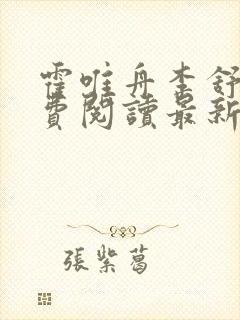 霍唯舟李舒
費閱讀最新
張紫葛